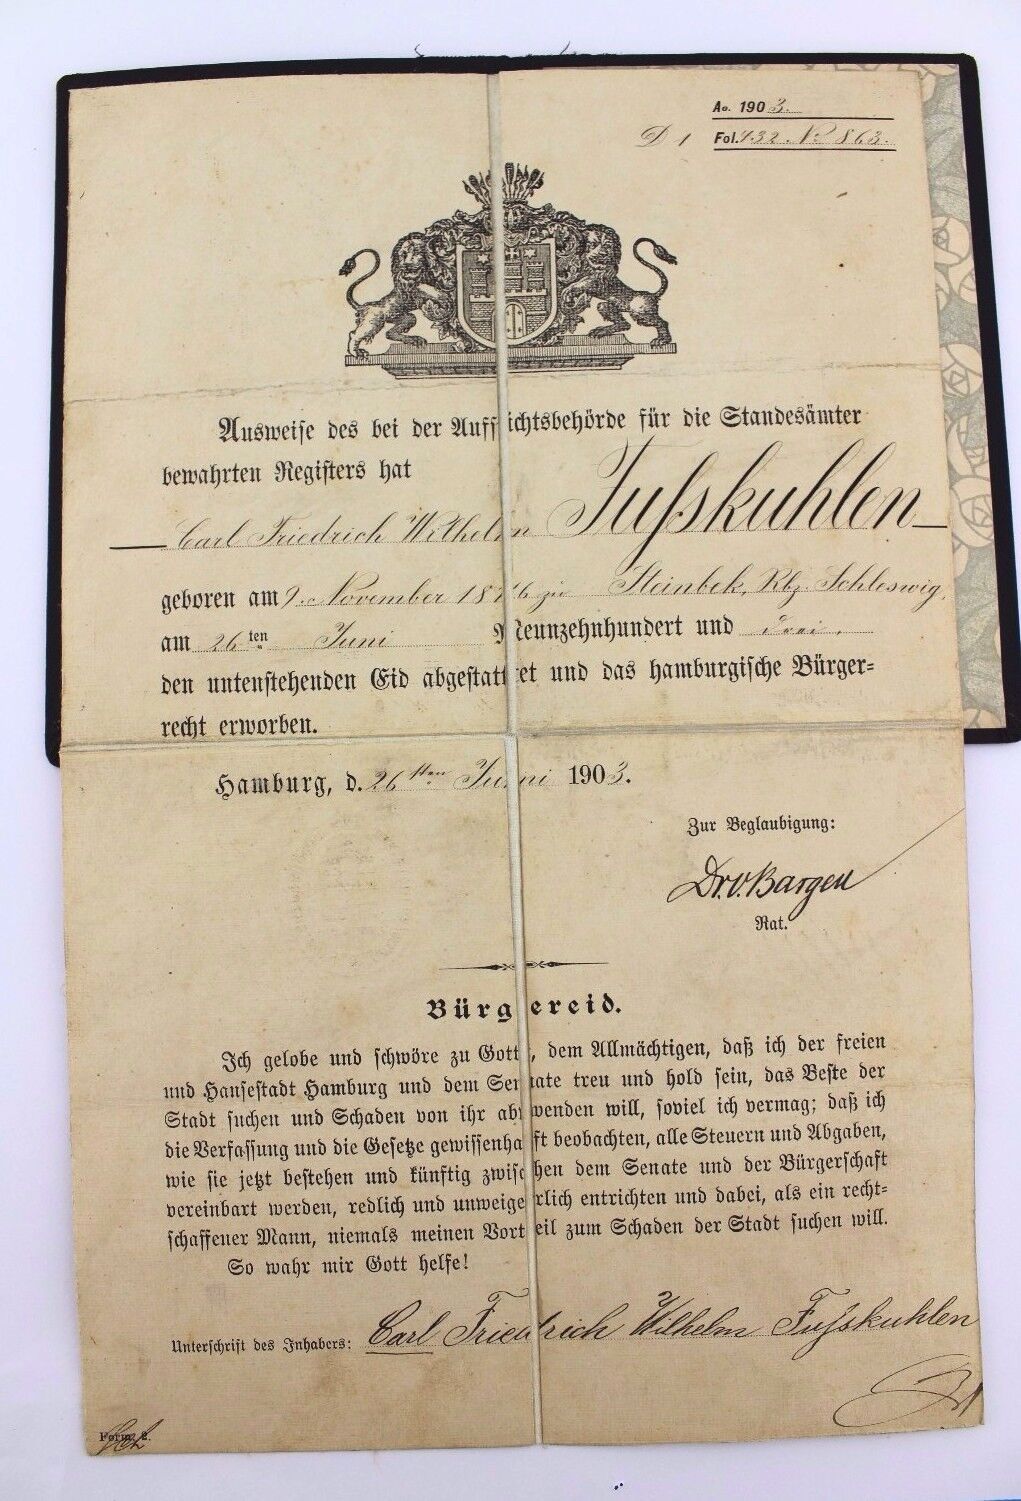 Ao. 1903.
D 1 Fol. 432. No 863.
Ausweise des bei der Aufsichtsbehörde für die Standesämter
bewahrten Registers hat
Carl Friedrich Wilhelm Fußkuhlen
geboren am 9. November 1876 zu Steinbek, Rbz. Schleswig,
am 26ten Juni Neunzehnhundert und drei.
den untenstehenden Eid abgestattet und das hamburgische Bürger=
recht erworben.
Hamburg, d. 26sten Juni 1903.
Zur Beglaubigung:
Dr. v. Bargen
Rat.
Bürgereid.
Ich gelobe und schwöre zu Gott, dem Allmächtigen, daß ich der freien
und Hansestadt Hamburg und dem Senate treu und hold sein, das Beste der
Stadt suchen und Schaden von ihr abwenden will, soviel ich vermag; daß ich
die Verfassung und die Gesetze gewissenhaft beobachten, alle Steuern und Abgaben,
wie sie jetzt bestehen und künftig zwischen dem Senate und der Bürgerschaft
vereinbart werden, redlich und unweigerlich entrichten und dabei, als ein recht=
schaffener Mann, niemals meinen Vorteil zum Schaden der Stadt suchen will.
So wahr mir Gott helfe!
Unterschrift des Inhabers: Carl Friedrich Wilhelm Fußkuhlen
Form. 2.